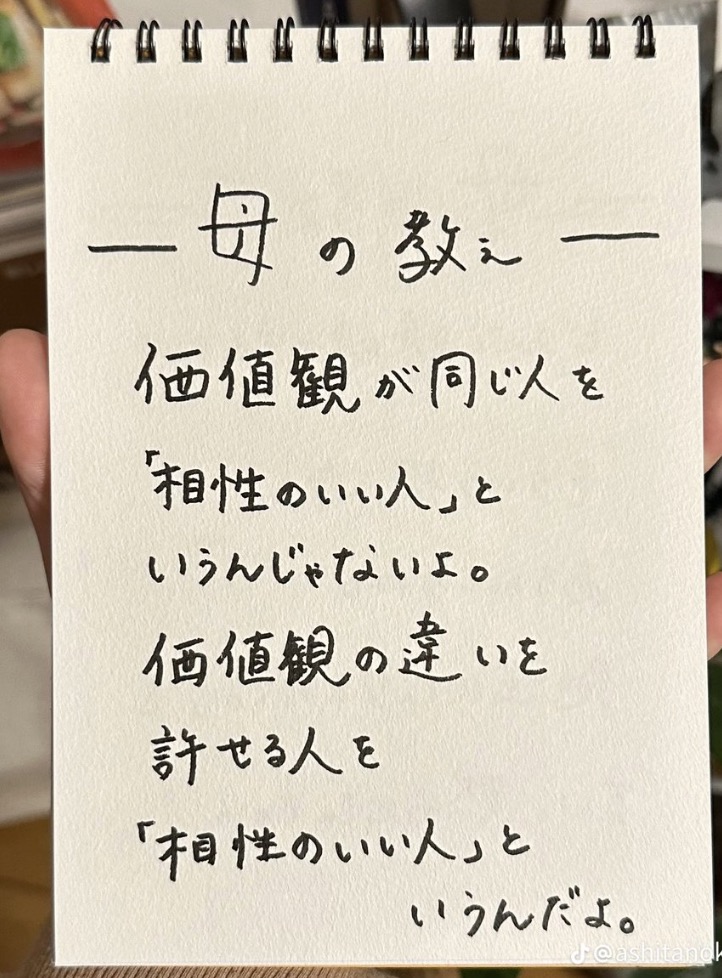 ― 母の教え ―
価値観が同じ人を
「相性のいい人」と
いうんじゃないよ。
価値観の違いを
許せる人を
「相性のいい人」と
いうんだよ。